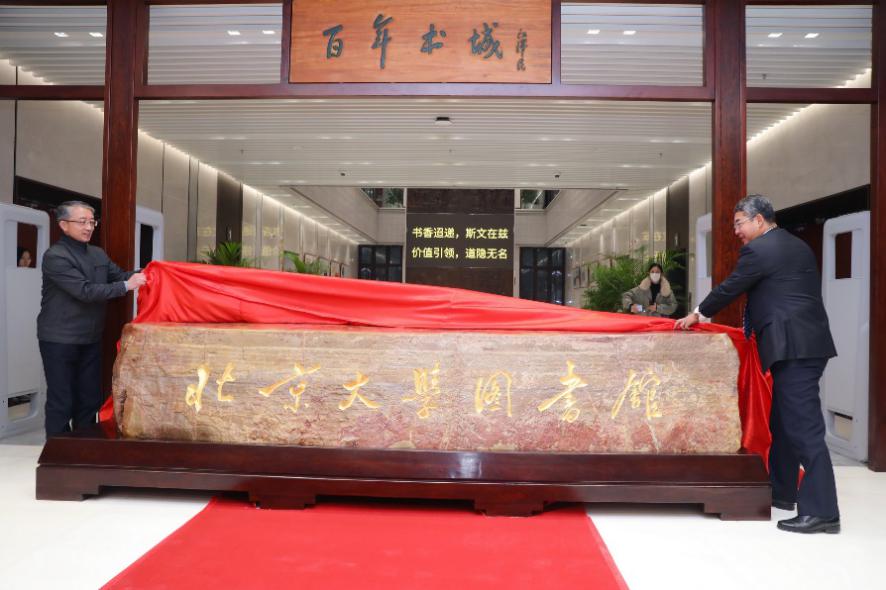 百年书城
江泽民
书香迢递，斯文在兹
价值引领，道隐无名
北京大學图書館